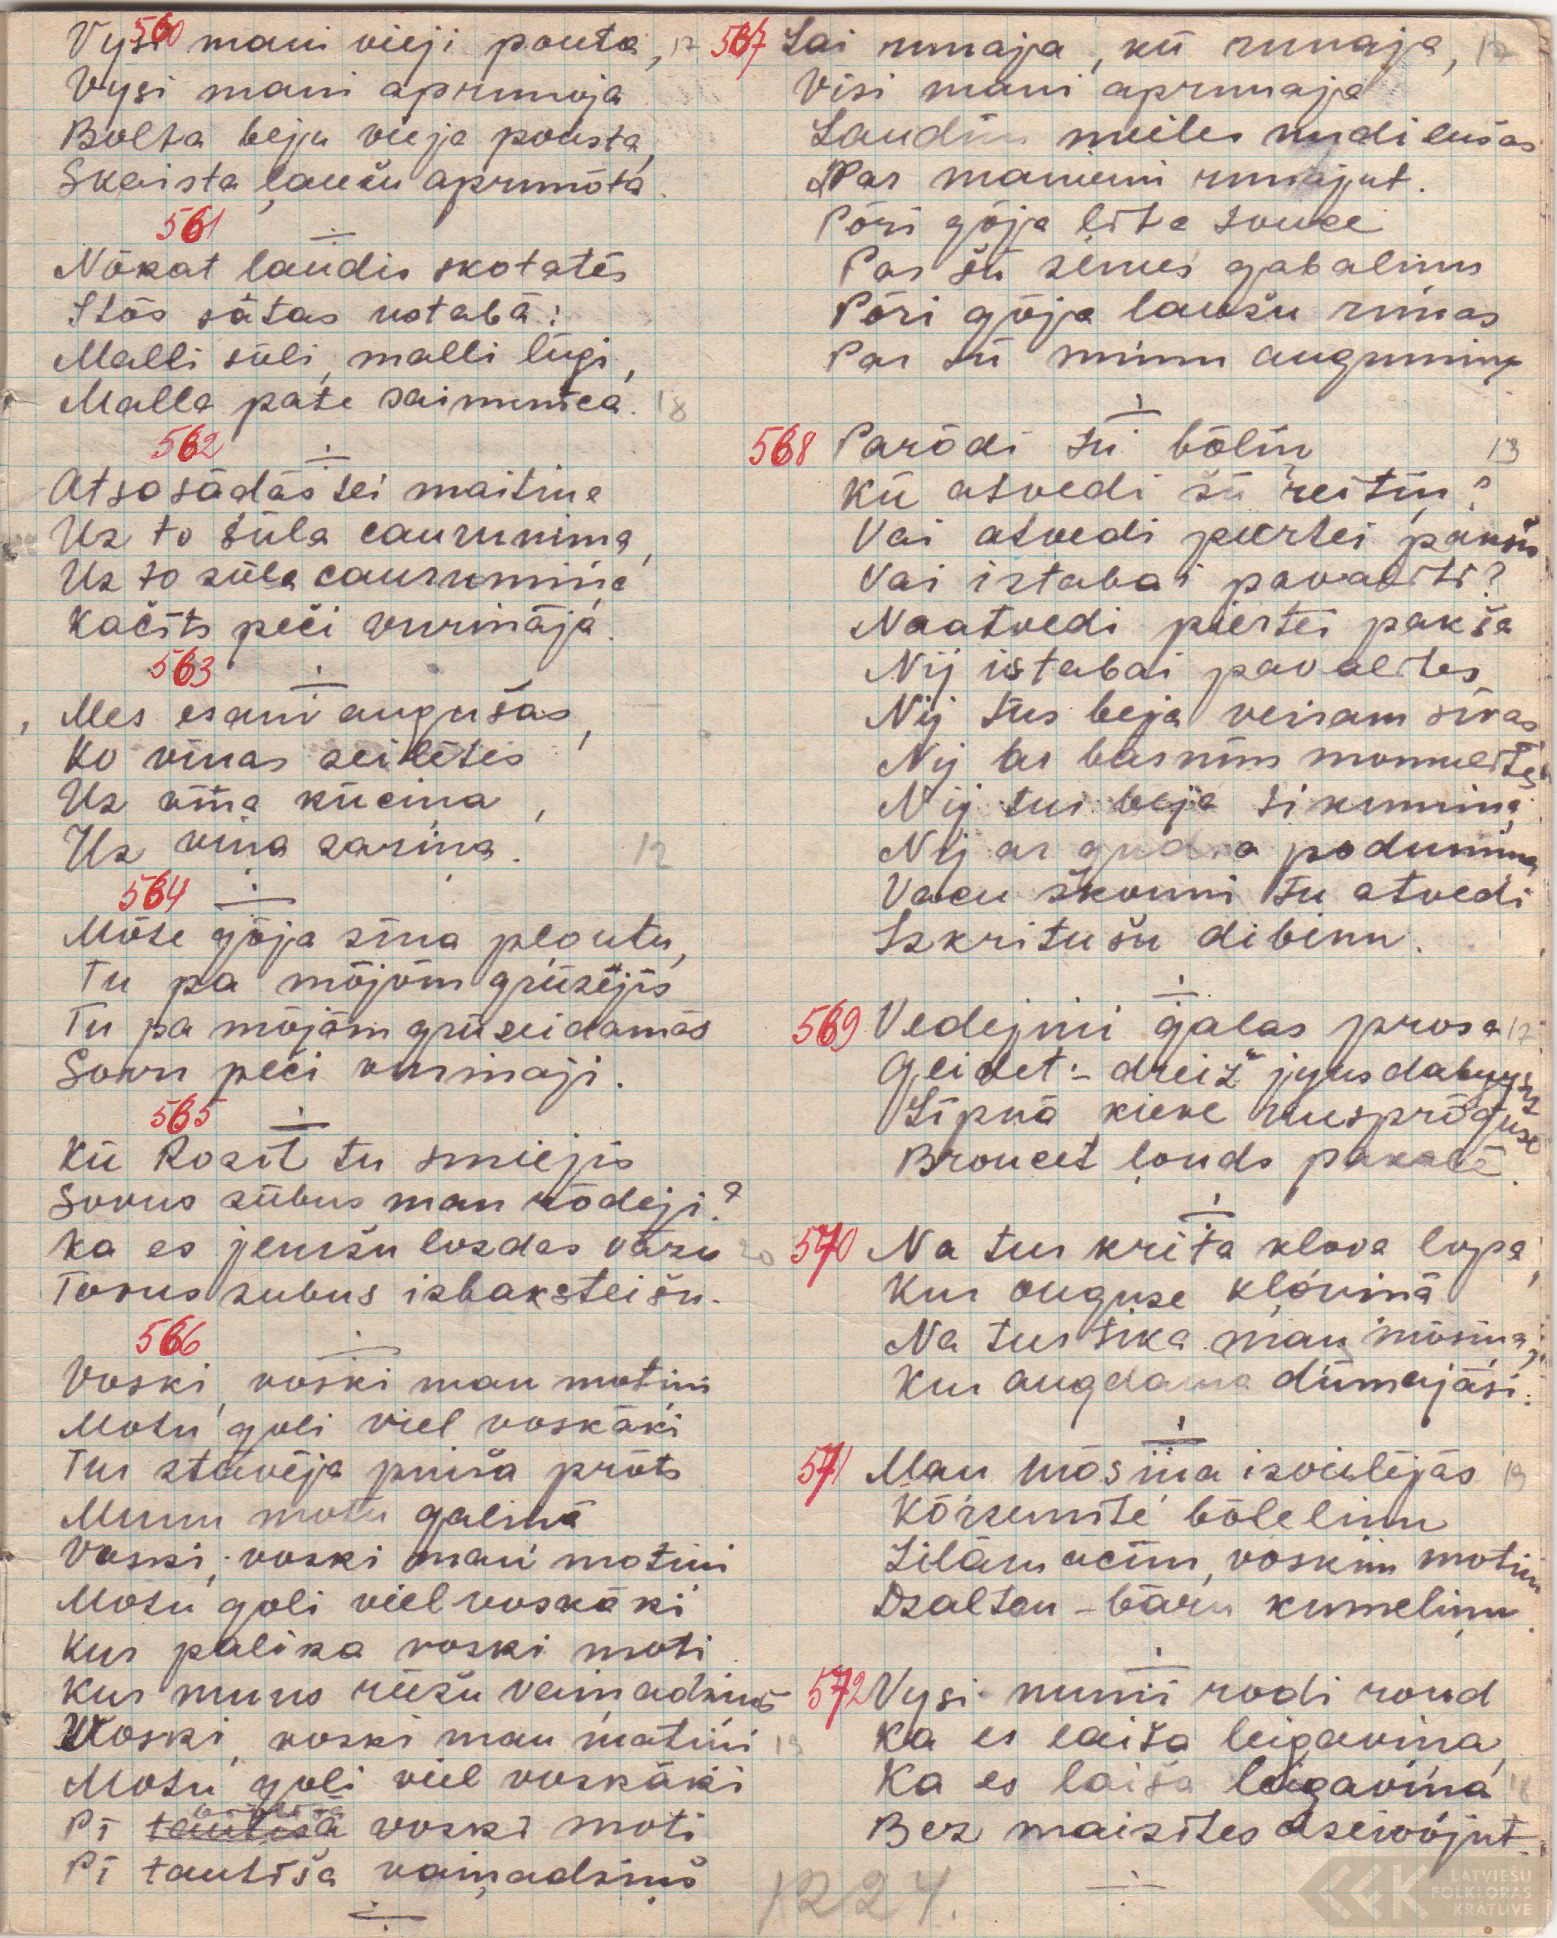 560
Vysi mani vieji pouta, 17
Vysi mani aprunoja
Bolta beju vieja pousta,
Skaista ļaužu aprunōta.
561
Nōkat ļaudis skotatēs
Šlōs sātas ustabā:
Malli sūli, malli lūgi,
Malla pate saiminīca. 18
562
Atsosādās sei maitiņa
Uz to sūla caurumiņa,
Uz to sūla caurumiņa
Kačīts peči vuriņāja.
563
Mes esam augušas,
Ko vīnas zeilītes
Uz vīna kūciņa,
Uz vīna zariņa. 12
564
Mōte gōja sīna pļautu,
Tu pa mōjōm grūzējīs
Tu pa mōjōm grūzeidamōs
Sovu peči vurinaji.
565
Kū Rozīt tu smiejīs
Sovus zūbus man rōdeji?
Ka es jemšu lozdas vāzu 20
Tovus zubus izbaksteišu.
566
Voski, voski man motiņi
Motu goli viel voskāki
Tur stāvēja puiša prōts
Munu motu galiņā
Voski, voski mani motiņi
Motu goli viel voskāki
Kur palika voski moti
Kur muns rūžu vaiņadziņš
Voski, voski man matiņi 19
Motu goli viel voskāki
Pī tautīša voski moti
Pī tautīša vaiņadziņš
1224.
567 Lai runaja, kū runaja, 17
Visi mani aprunaja
Laudīm meiles nudilušas
Par manimi runajut.
Pōri gōja leita souce
Par šū zemes gabaliņu
Pōri gōja laužu runas
Par šū munu augumiņu
568 Parōdi tu bōliņ 19
Kū atvedi šū reitiņ?
Vai atvedi piertei pakšu
Vai iztabai pavalīti?
Naatvedi piertei pakša
Nij istabai pavalītes
Nij tūs beja veiram sīvas
Nij ar barnim momulītes
Nij tui beja tikumiņa
Nij ar gudra podumiņa
Vacu škouni tu atvedi
Izkritušu dibinu.
569 Vedejiņi galas prosa 17
Gleidet:- dreiž jyus dabuysi
Līpnā kieve nusprōguse
Broucet ļouds pakaļē.
570 Na tur krita kļova lopa,
Kur ouguse kļōviņā
Na tur tika man mōsiņa,
Kur augdama dūmajāsi.
571 Man mōsiņa izvielējās 19
Kōrzunīte bōleliņu
Zilām acim, voskim motim
Dzaltan-bāru kumeliņu.
572 Vysi muni rodi roud
Ka es laiža leigaviņa,
Ka es laiža leigaviņa 18
Bez maizītes dzeivōjut.
LATVIEŠU
FOLKLORAS
KRĀTUVE